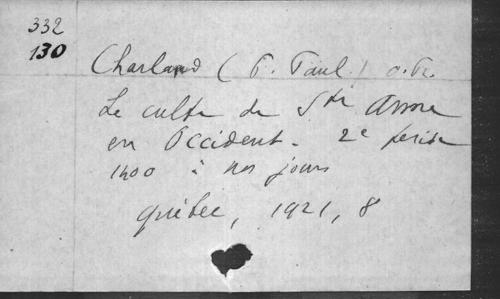 332
130
Charland (P. Paul.) o. Pr.
Le culte de Ste Anne
en Occident. 2e périod
1400 à nos jours
Québec, 1921, 8